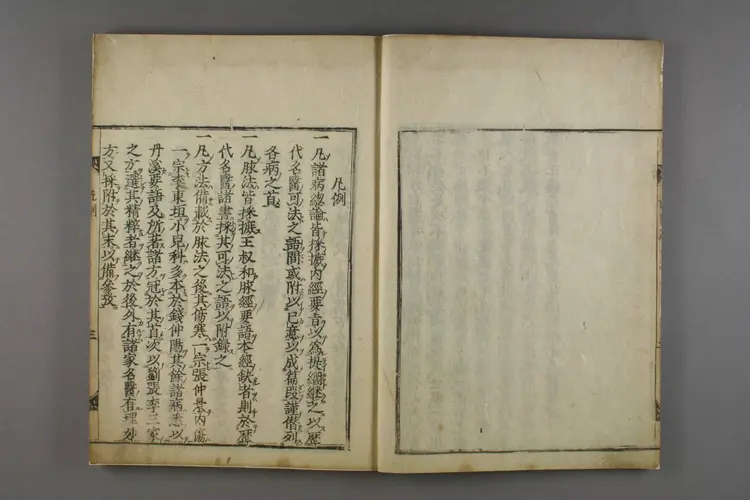 凡例
一凡諸病總論皆採摭內經要旨以為提綱繼之以歷
代名醫可法之語間或附以己意以成篇段謹僭列
各病之首
一凡脉法皆採摭王叔和脉經要語本經缺者則於歷
代名醫諸書採其可法之語以附錄之
一凡方法備載於脉法之後其傷寒一宗張仲景內傷
一宗李東垣小兒科多本於錢仲陽其餘諸病悉以
丹溪要語及所著諸方冠於其首次以劉張李三家
之方選其精粹者繼之於後外有諸家名醫有理妙
方又採附於其末以備參考
凡例
三